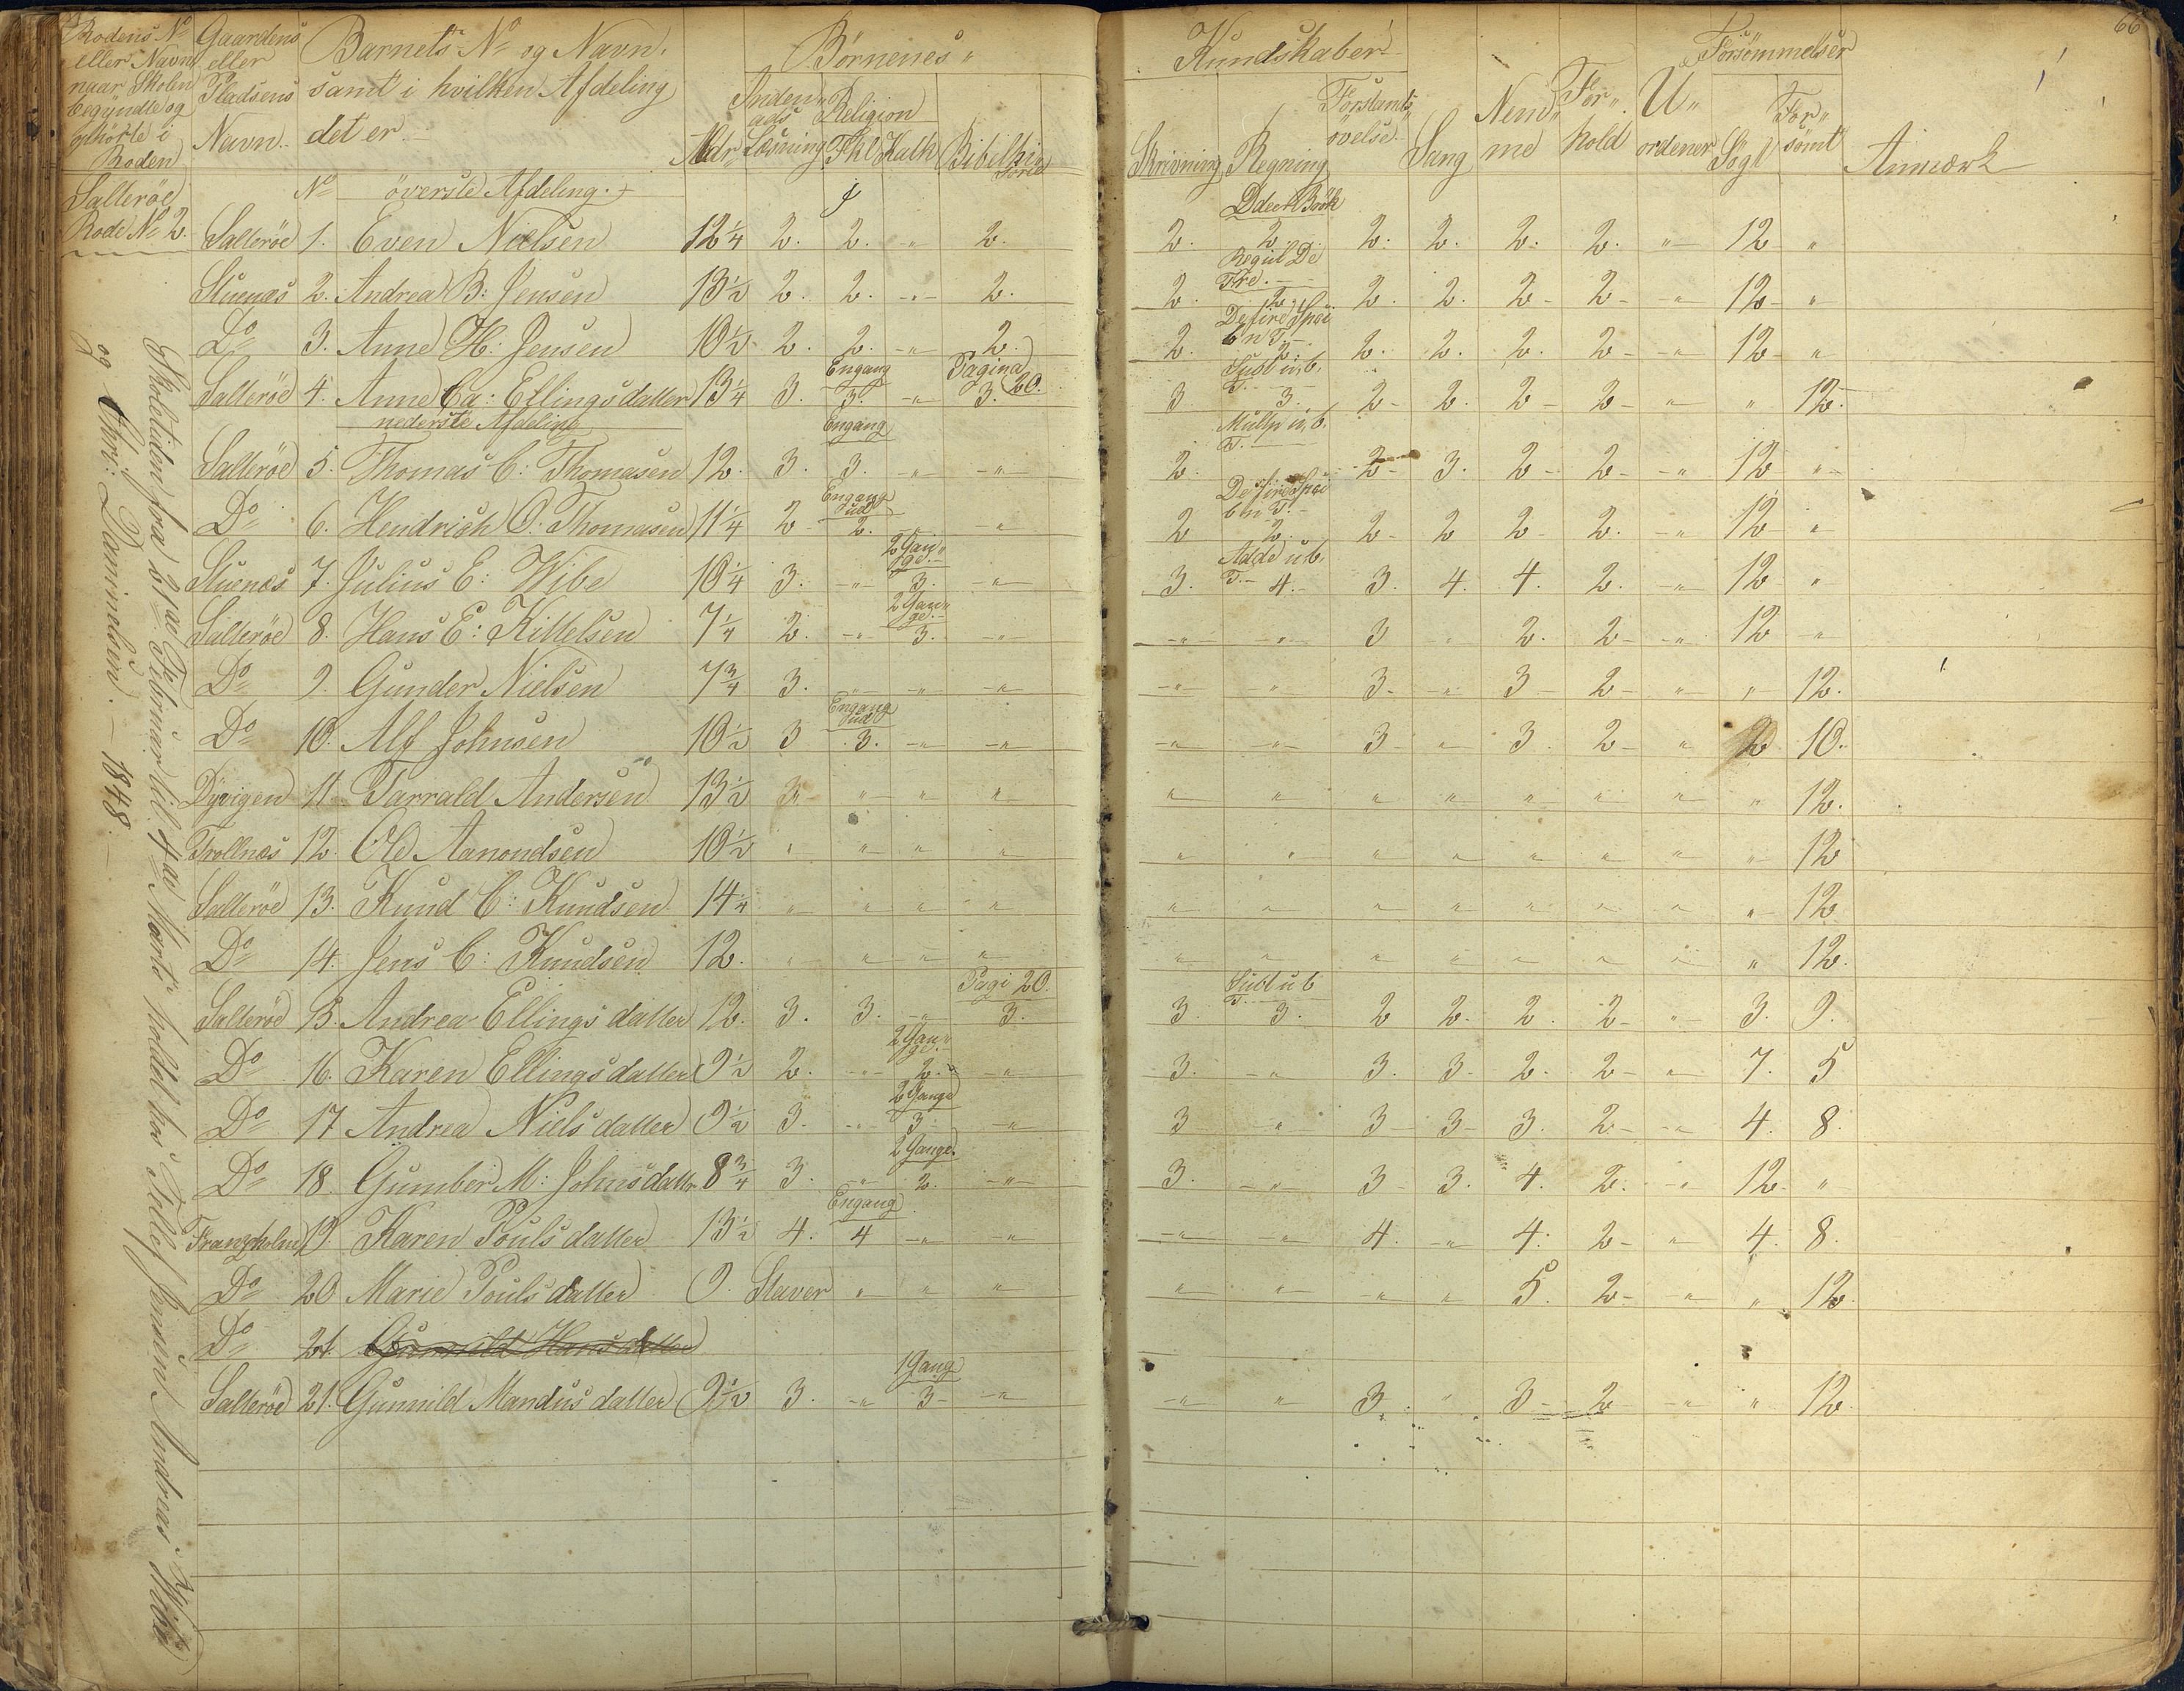 66
Rodens No Gaardens Barnets No og Navn, Börnenes Kundskaber Forsömmelser
eller Navn eller samt i hvilken Afdeling
naar Skolen Pladsens det er
begyndte og Navn
ophörte i
Roden
Aldr Inden ads Læsning Religion Fkl Katk Bibelhi storie Skrivning Regning Forstands övelse Sang Nem me For hold U ordener Sögt For sömt Anmærk
Salleröe No överste Afdeling.
Rode No 2. Ddect Brök
Salleröe 1. Even Nielsen 12 1/4 2. 2. " 2. 2. 2. 2. 2. 2. 2. " 12 "
Regul De Tre.
Stuenæs 2. Andrea B: Jensen 13 1/2 2. 2. " 2. 2. 2. 2. 2. 2 2 " 12 "
De fire Spei b n T.
Do 3. Anne H: Jensen 10 1/2 2. 2. " 2. 2. 2. 2. 2. 2. 2 " 12 "
Engang Pagina 20. Sust u, b, T.
Salleröe 4. Anne Ca: Ellingsdatter 13 1/4 3. 3. " 3. 3 3. 2 2. 2 2 " " 12.
nederste Afdeling Engang Multp u, b. T.
Salleröe 5. Thomas C: Thomasen 12. 3. 3. " " 2. 2 3. 2 2 " 12 "
Engang ud De fire Spei b n T.
Do 6. Hendrich O: Thomasen 11 1/4 2 2. " " 2 2. 2 2 2 2. " 12 "
2 Gan ge. Adde u b, T.
Stuenæs 7. Julius E: Wibe 10 1/4 3. " 3. " 3. 4. 3. 4. 4. 2. " 12 "
2 Gan ge.
Salleröe 8. Hans E: Kittelsen 7 1/4 2. " 3. " " " 3 " 2. 2 " 12 "
Do 9. Gunder Nielsen 7 3/4 3. " " " " " 3. " 3 2 " " 12.
Engang ud
Do 10. Alf Johnsen 10 1/2 3 3. " " " " 3 " 3 2 " 2 10.
Dyvigen 11. Tarrald Andersen 13 1/2 " " " " " " " " " " " " 12.
Trollnæs 12. Ole Aanondsen 10 1/2 " " " " " " " " " " " " 12
Salleröe 13. Knud C: Knudsen 14 1/4 " " " " " " " " " " " " 12
Do 14. Jens C: Knudsen 12. " " " " " " " " " " " " 12.
Pagi 20. Subt u b T.
Salleröe 15. Andrea Ellingsdatter 12. 3. 3. " 3. 3. 3. 2 2. 2. 2 " 3. 9.
2 Gan ge.
Do 16. Karen Ellingsdatter 9 1/2 2. " 2. " 3. " 3. 3 2. 2 " 7. 5
2 Gange
Do 17 Andrea Nielsdatter 9 1/2 3. " 3 " 3 " 3 3 3. 2 " 4. 8.
2 Gange
Do 18. Gumber M: Johnsdattr 8 3/4 3. " 2. " 3. " 3 3. 4. 2. " 12. "
Engang
Franzholm 19. Karen Poulsdatter 13 1/2 4. 4 " " " " 4. " 4. 2 " 4. 8.
Do 20 Marie Poulsdatter 9. Staver " " " " " " " 5. 2 " " 12.
Do 21. Gunnild Hansdatter
1 Gang
Salleröe 21. Gunnild Mandusdatter 9 1/2 3. " 3 " " " 3. " 3 2 " " 12.
Skoletiden fra 21de Februar til 4de Marts holdet hos Tellef Jensen, Andreas Wibe
og Chri: Danielsen. 1848.